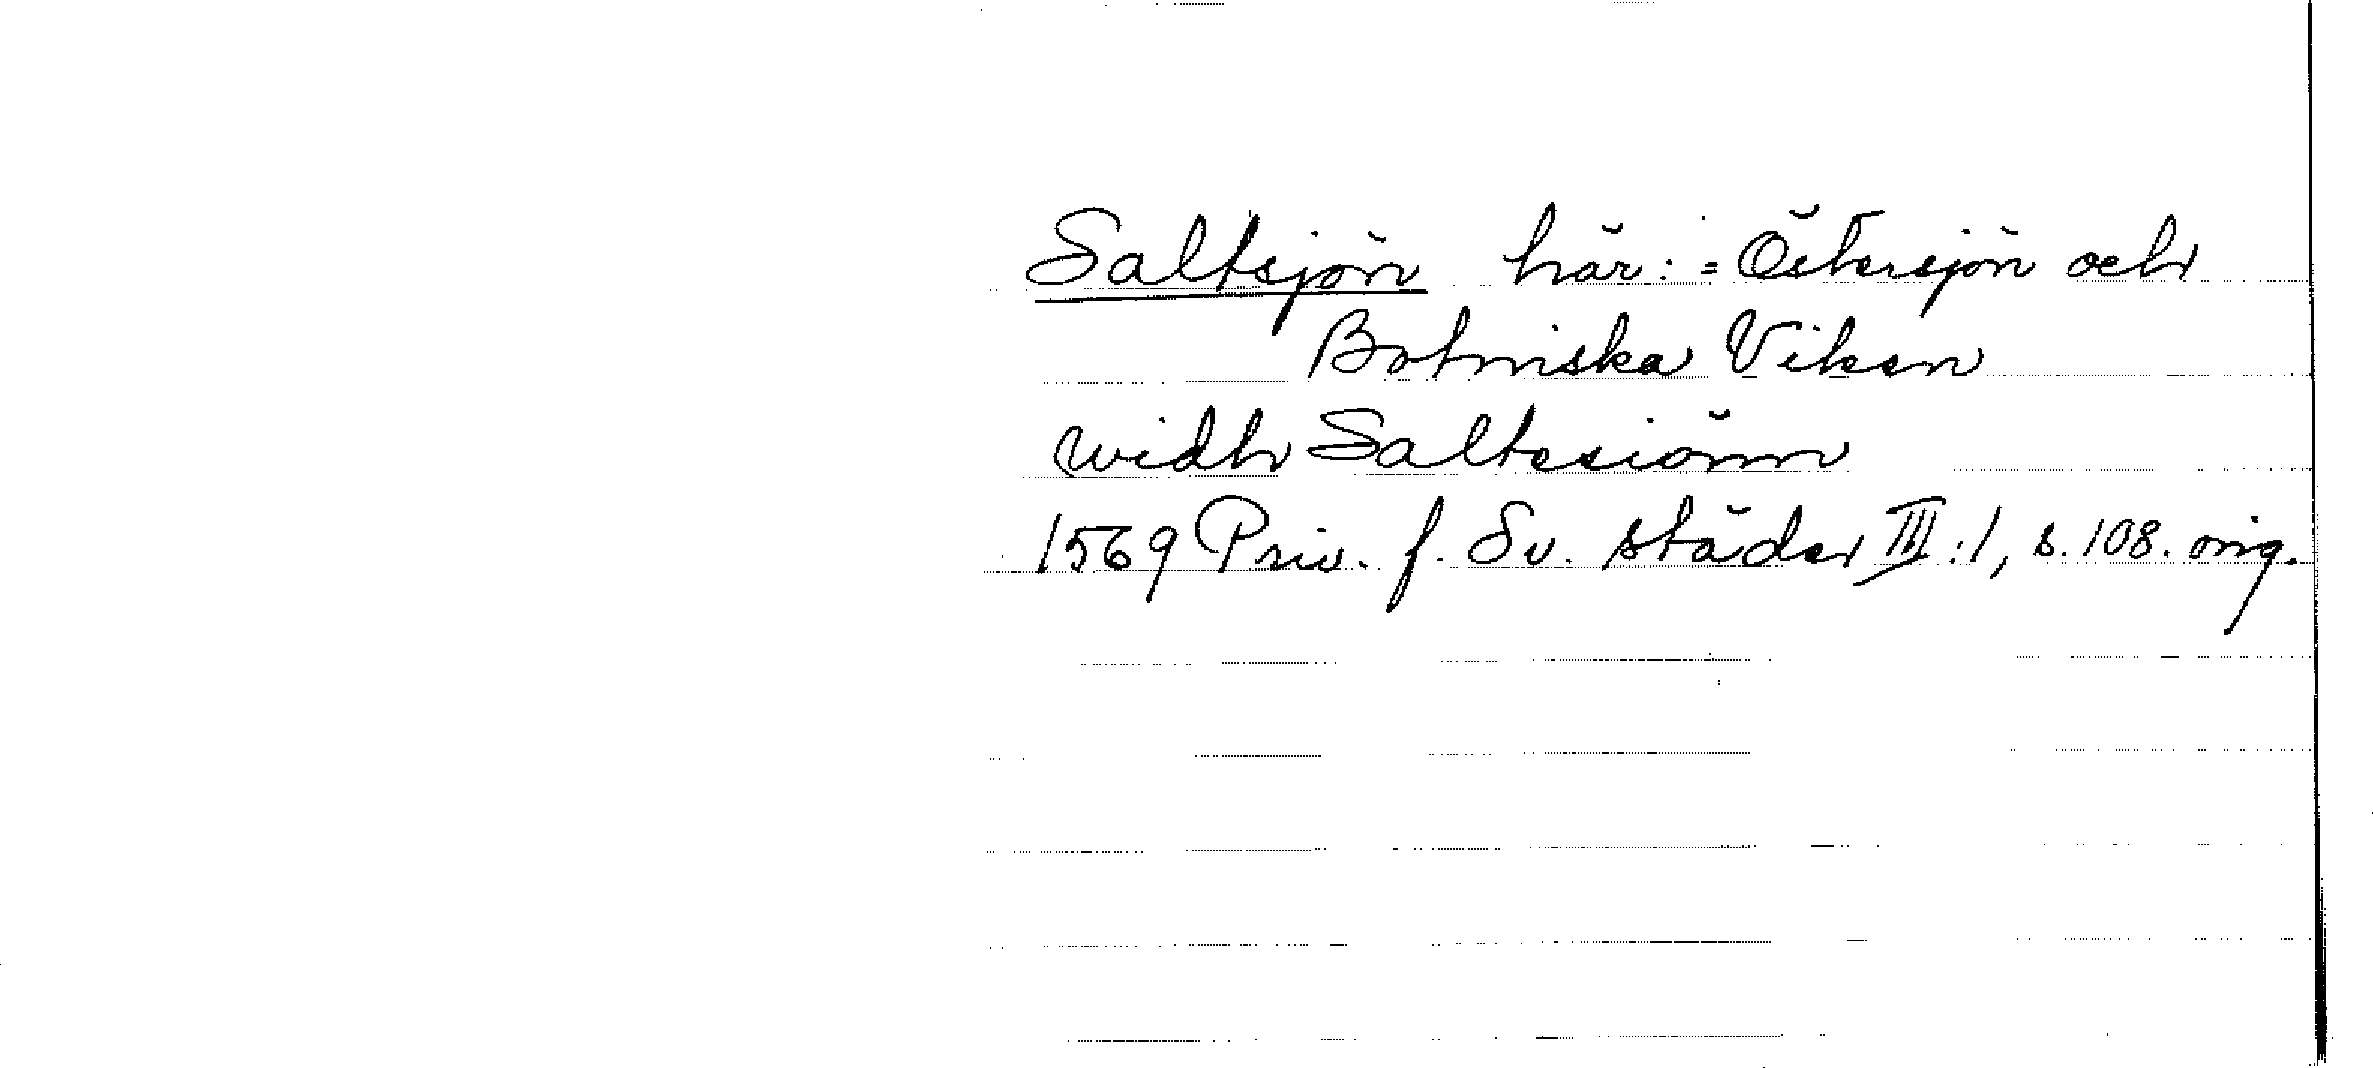 Saltsjön här: = Östersjön och
Botniska Viken
widh Saltesiönn
1569 Priv. f. Sv. städer III:1, s. 108. orig.